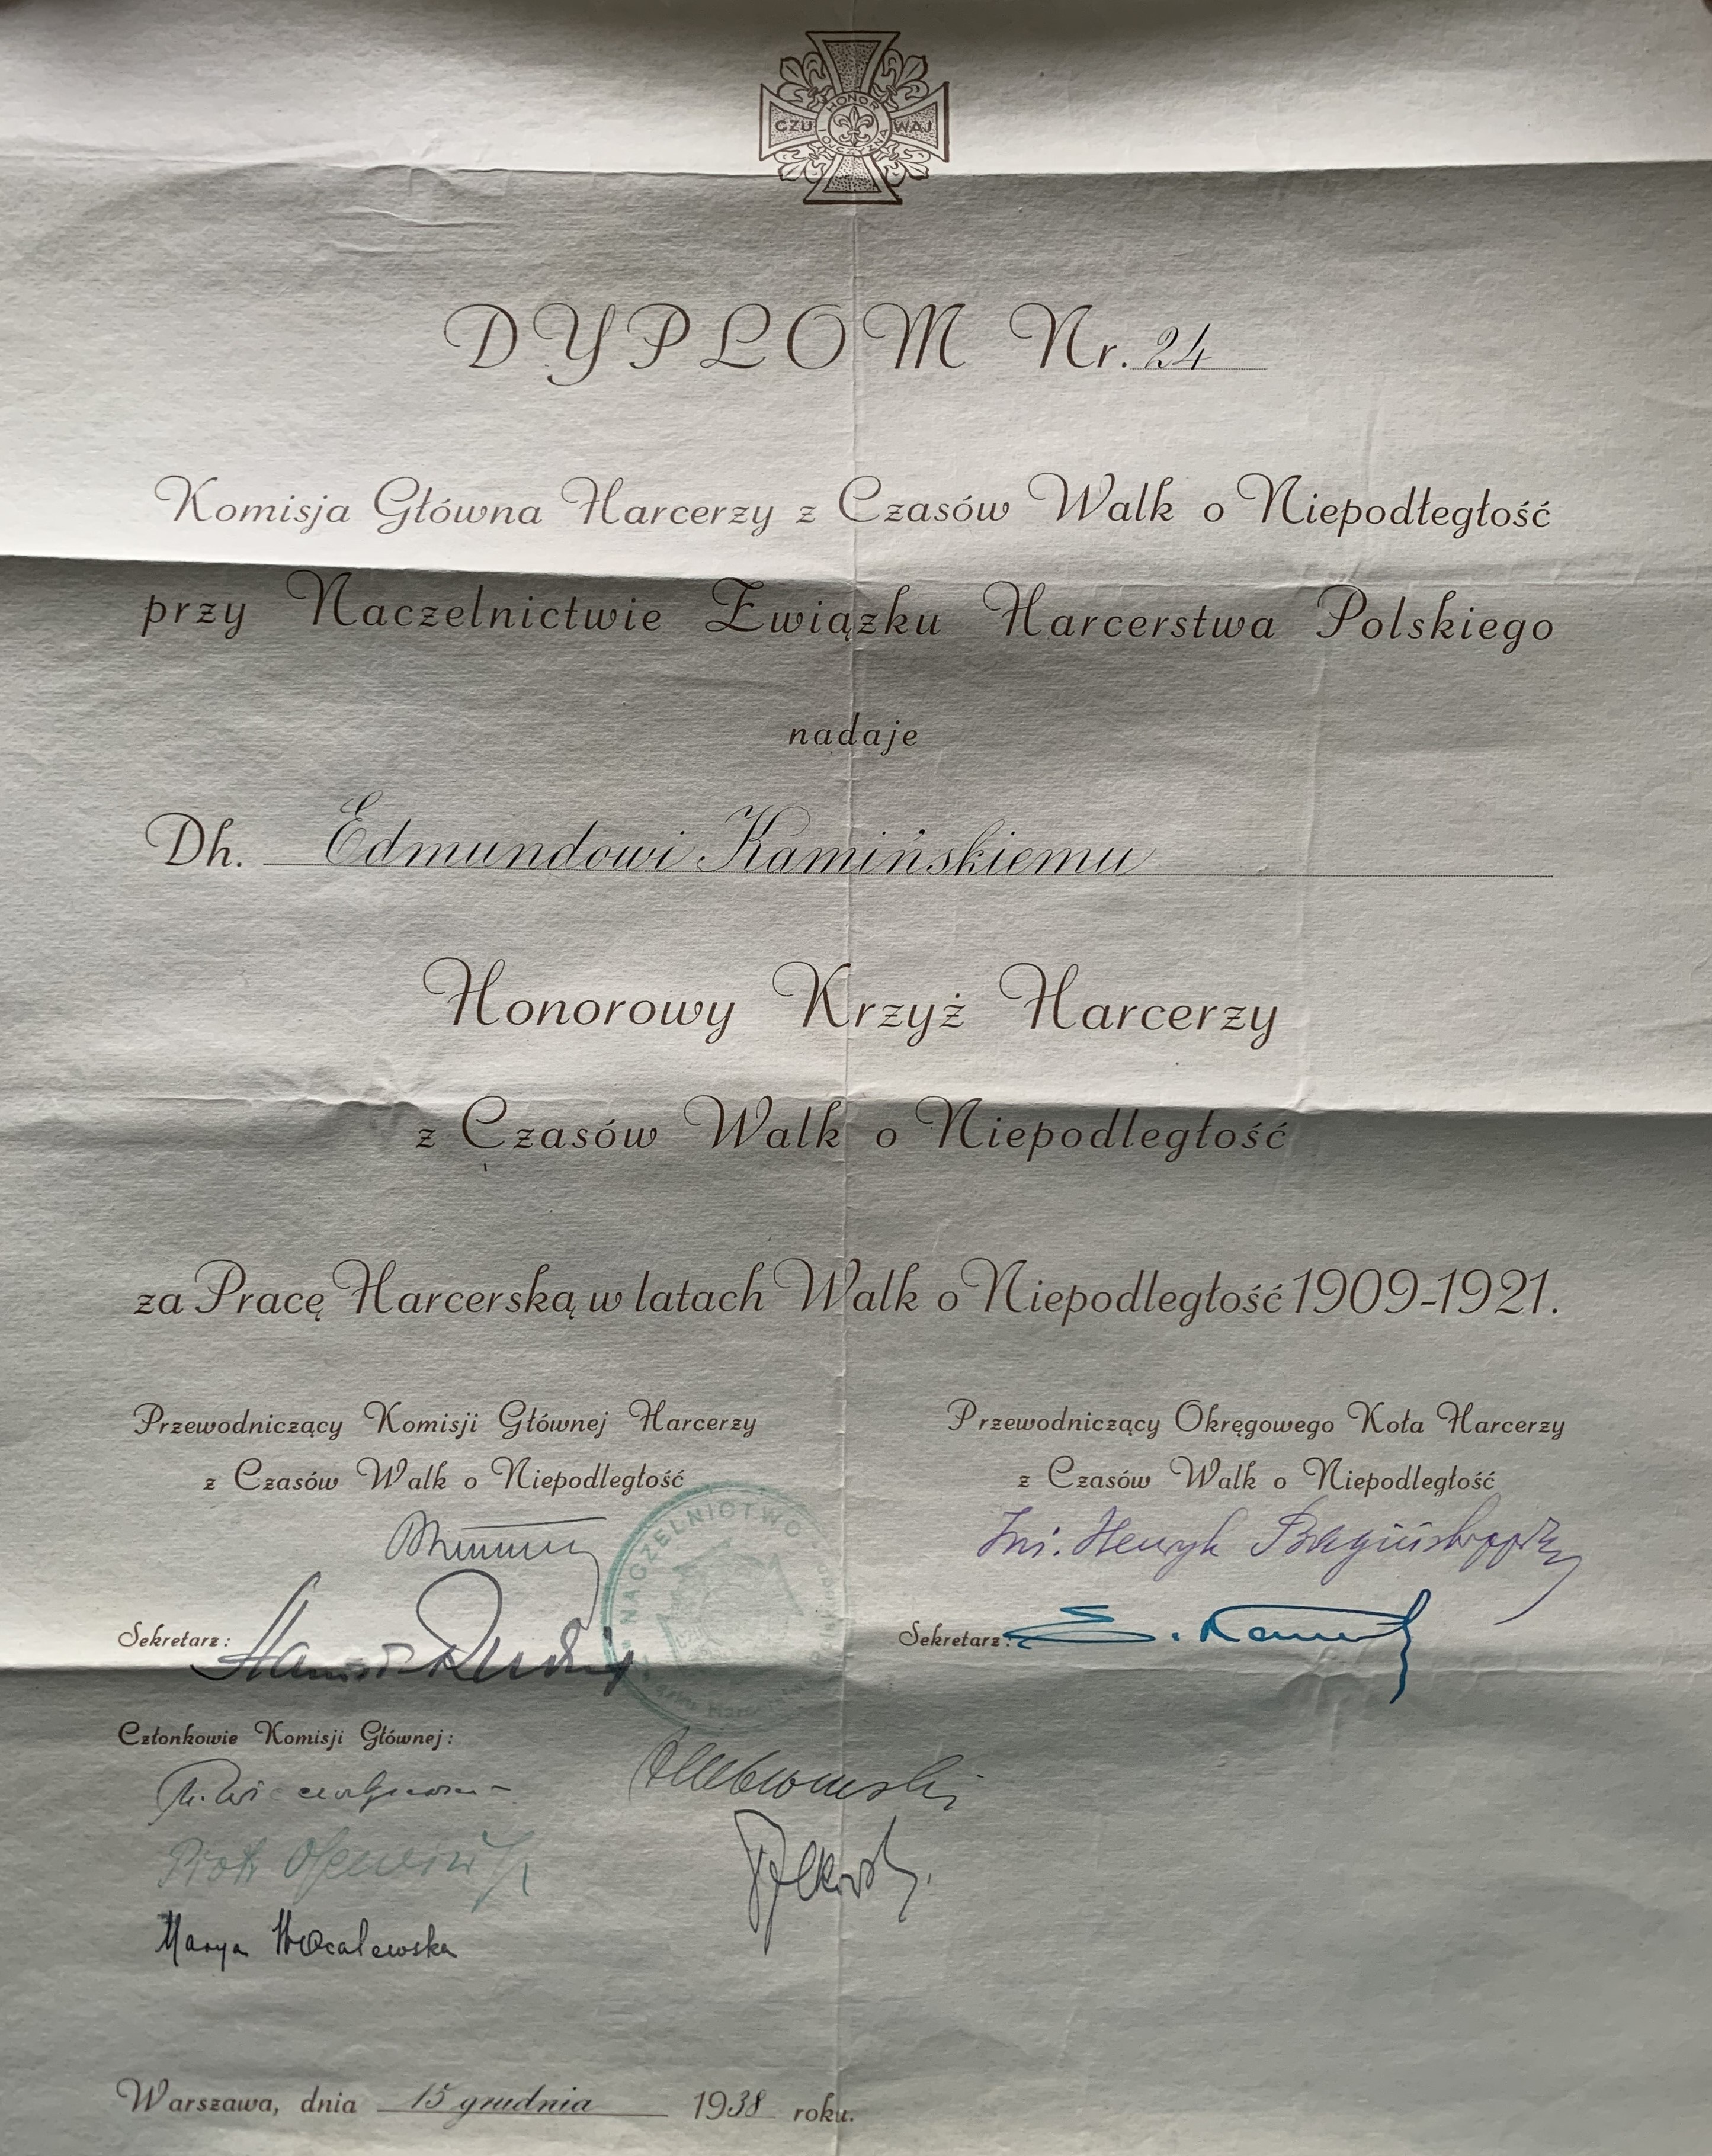 HONOR
CZU WAJ
I OJCZYZNA
DYPLOM Nr. 24
Komisja Główna Harcerzy z Czasów Walk o Niepodłegłość
przy Naczelnictwie Związku Harcerstwa Polskiego
nadaje
Dh. Edmundowi Kamińskiemu
Honorowy Krzyż Harcerzy
z Czasów Walk o Niepodległość
za Pracę Harcerską w latach Walk o Niepodległość 1909-1921.
Przewodniczący Komisji Głównej Harcerzy
z Czasów Walk o Niepodległość
Przewodniczący Okręgowego Koła Harcerzy
z Czasów Walk o Niepodległość
NACZELNICTWO
Inż. Henryk Bagiński
Sekretarz:
Sekretarz:
Członkowie Komisji Głównej:
Piotr Olewiński
Marya Wocalewska
Warszawa, dnia 15 grudnia 1938 roku.